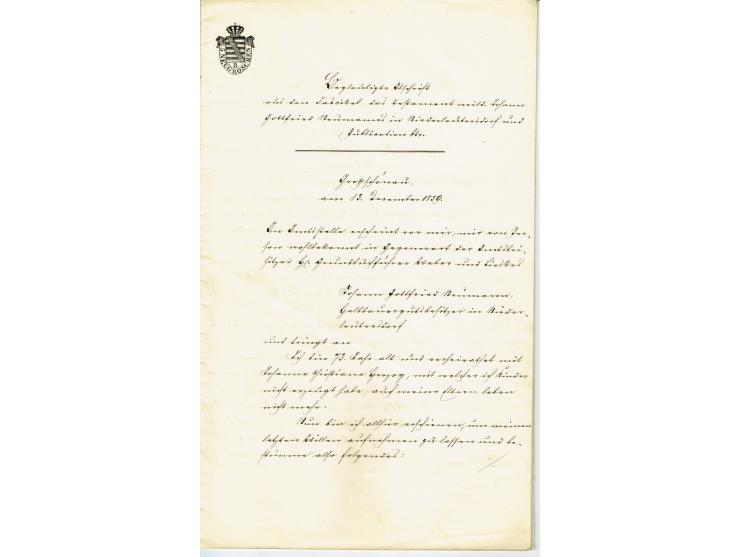 8
NEUGROSCHEN
Beglaubigte Abschrift
aus den Fascikel das Testament weild. Johann
Gottfried Neumanns in Niederleutersdorf und
Publication btr.
Großschönau,
am 13. December 1859.
An Amtsstelle erscheint vor mir, mir von Per-
son wohlbekannt in Gegenwart der Amtsbei-
sitzer H. Grundbuchführer Weber und
Johann Gottfried Neumann,
Halbbauergutsbesitzer in Nieder-
leutersdorf
und bringt an
Ich bin 73. Jahr alt und verheirathet mit
Johanne Christiane Herzog, mit welcher ich Kinder
nicht erzeugt habe, auch meine Eltern leben
nicht mehr.
Nun bin ich allhier erschienen, um meinen
letzten Willen aufnehmen zu lassen und be-
stimme also folgendes: